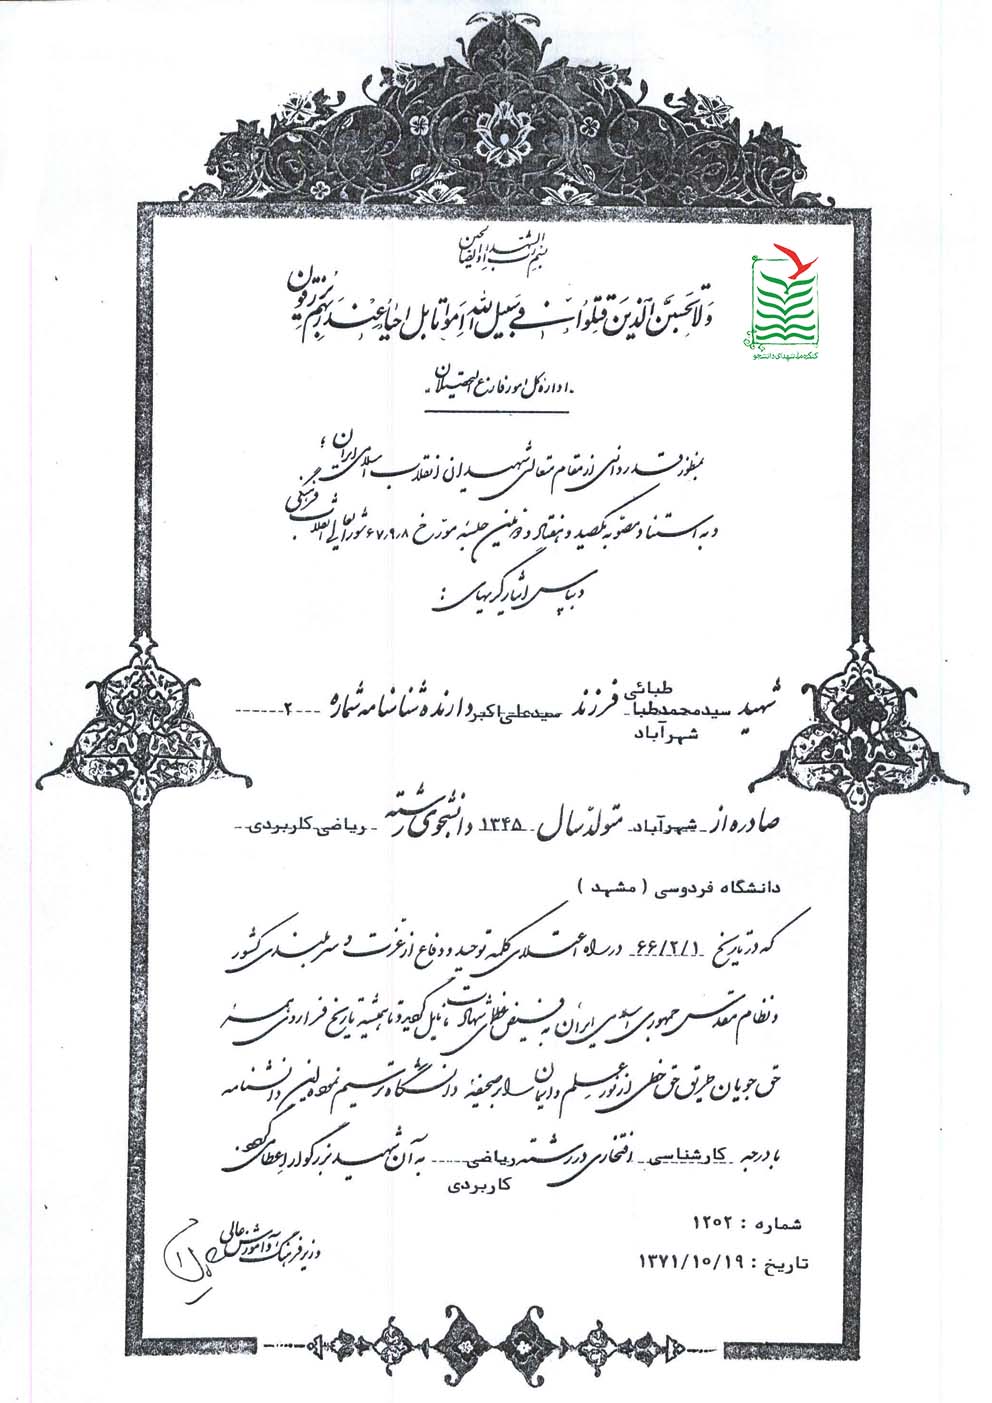 بسم رب الشهداء و الصالحین
ولا تحسبن الذین قتلوا فی سبیل الله امواتا بل احیاء عند ربهم یرزقون
کنگره ملی شهدای دانشجو
اداره کل امور فارغ التحصیلان
بمنظور قدردانی از مقام متعالی شهیدان انقلاب اسلامی ایران ؛
و به استناد مصوبه یکصد و هفتاد و دومین جلسه مورخ ۶۷٫۹٫۸ شورایعالی انقلاب فرهنگی
و بپاس ایثارگریهای :
شهید سیدمحمدطبا طبائی شهرآباد فرزند سیدعلی اکبر دارنده شناسنامه شماره ۲
صادره از شهرآباد متولد سال ۱۳۴۵ دانشجوی رشته ریاضی کاربردی
دانشگاه فردوسی ( مشهد )
که در تاریخ ۶۶/۲/۱ در راه اعتلای کلمه توحید و دفاع از عزت و سربلندی کشور
و نظام مقدس جمهوری اسلامی ایران به فیض عظمای شهادت نایل گردید و تا همیشه تاریخ فرا روی همه
حق جویان طریق حق خطی از نور علم و ایمان بر صحیفه دانشگاه ترسیم نموده این دانشنامه
با درجه کارشناسی افتخاری در رشته ریاضی کاربردی به آن شهید بزرگوار اعطا می گردد.
شماره : ۱۲۰۲
تاریخ : ۱۳۷۱/۱۰/۱۹
وزیر فرهنگ و آموزش عالی